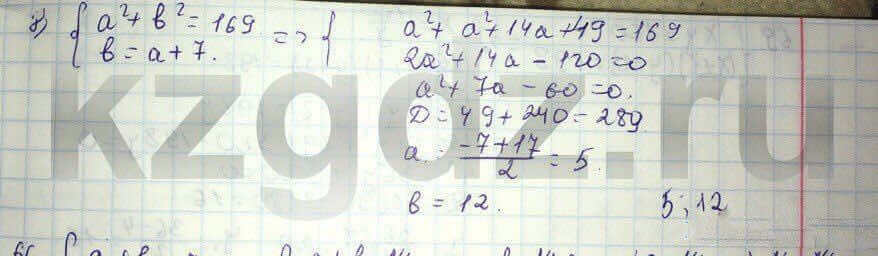 8) { a² + b² = 169
b = a + 7. => {
a² + a² + 14a + 49 = 169
2a² + 14a - 120 = 0
a² + 7a - 60 = 0.
D = 49 + 240 = 289
a = (-7 + 17)/2 = 5.
b = 12. 5; 12
kzgdz.ru